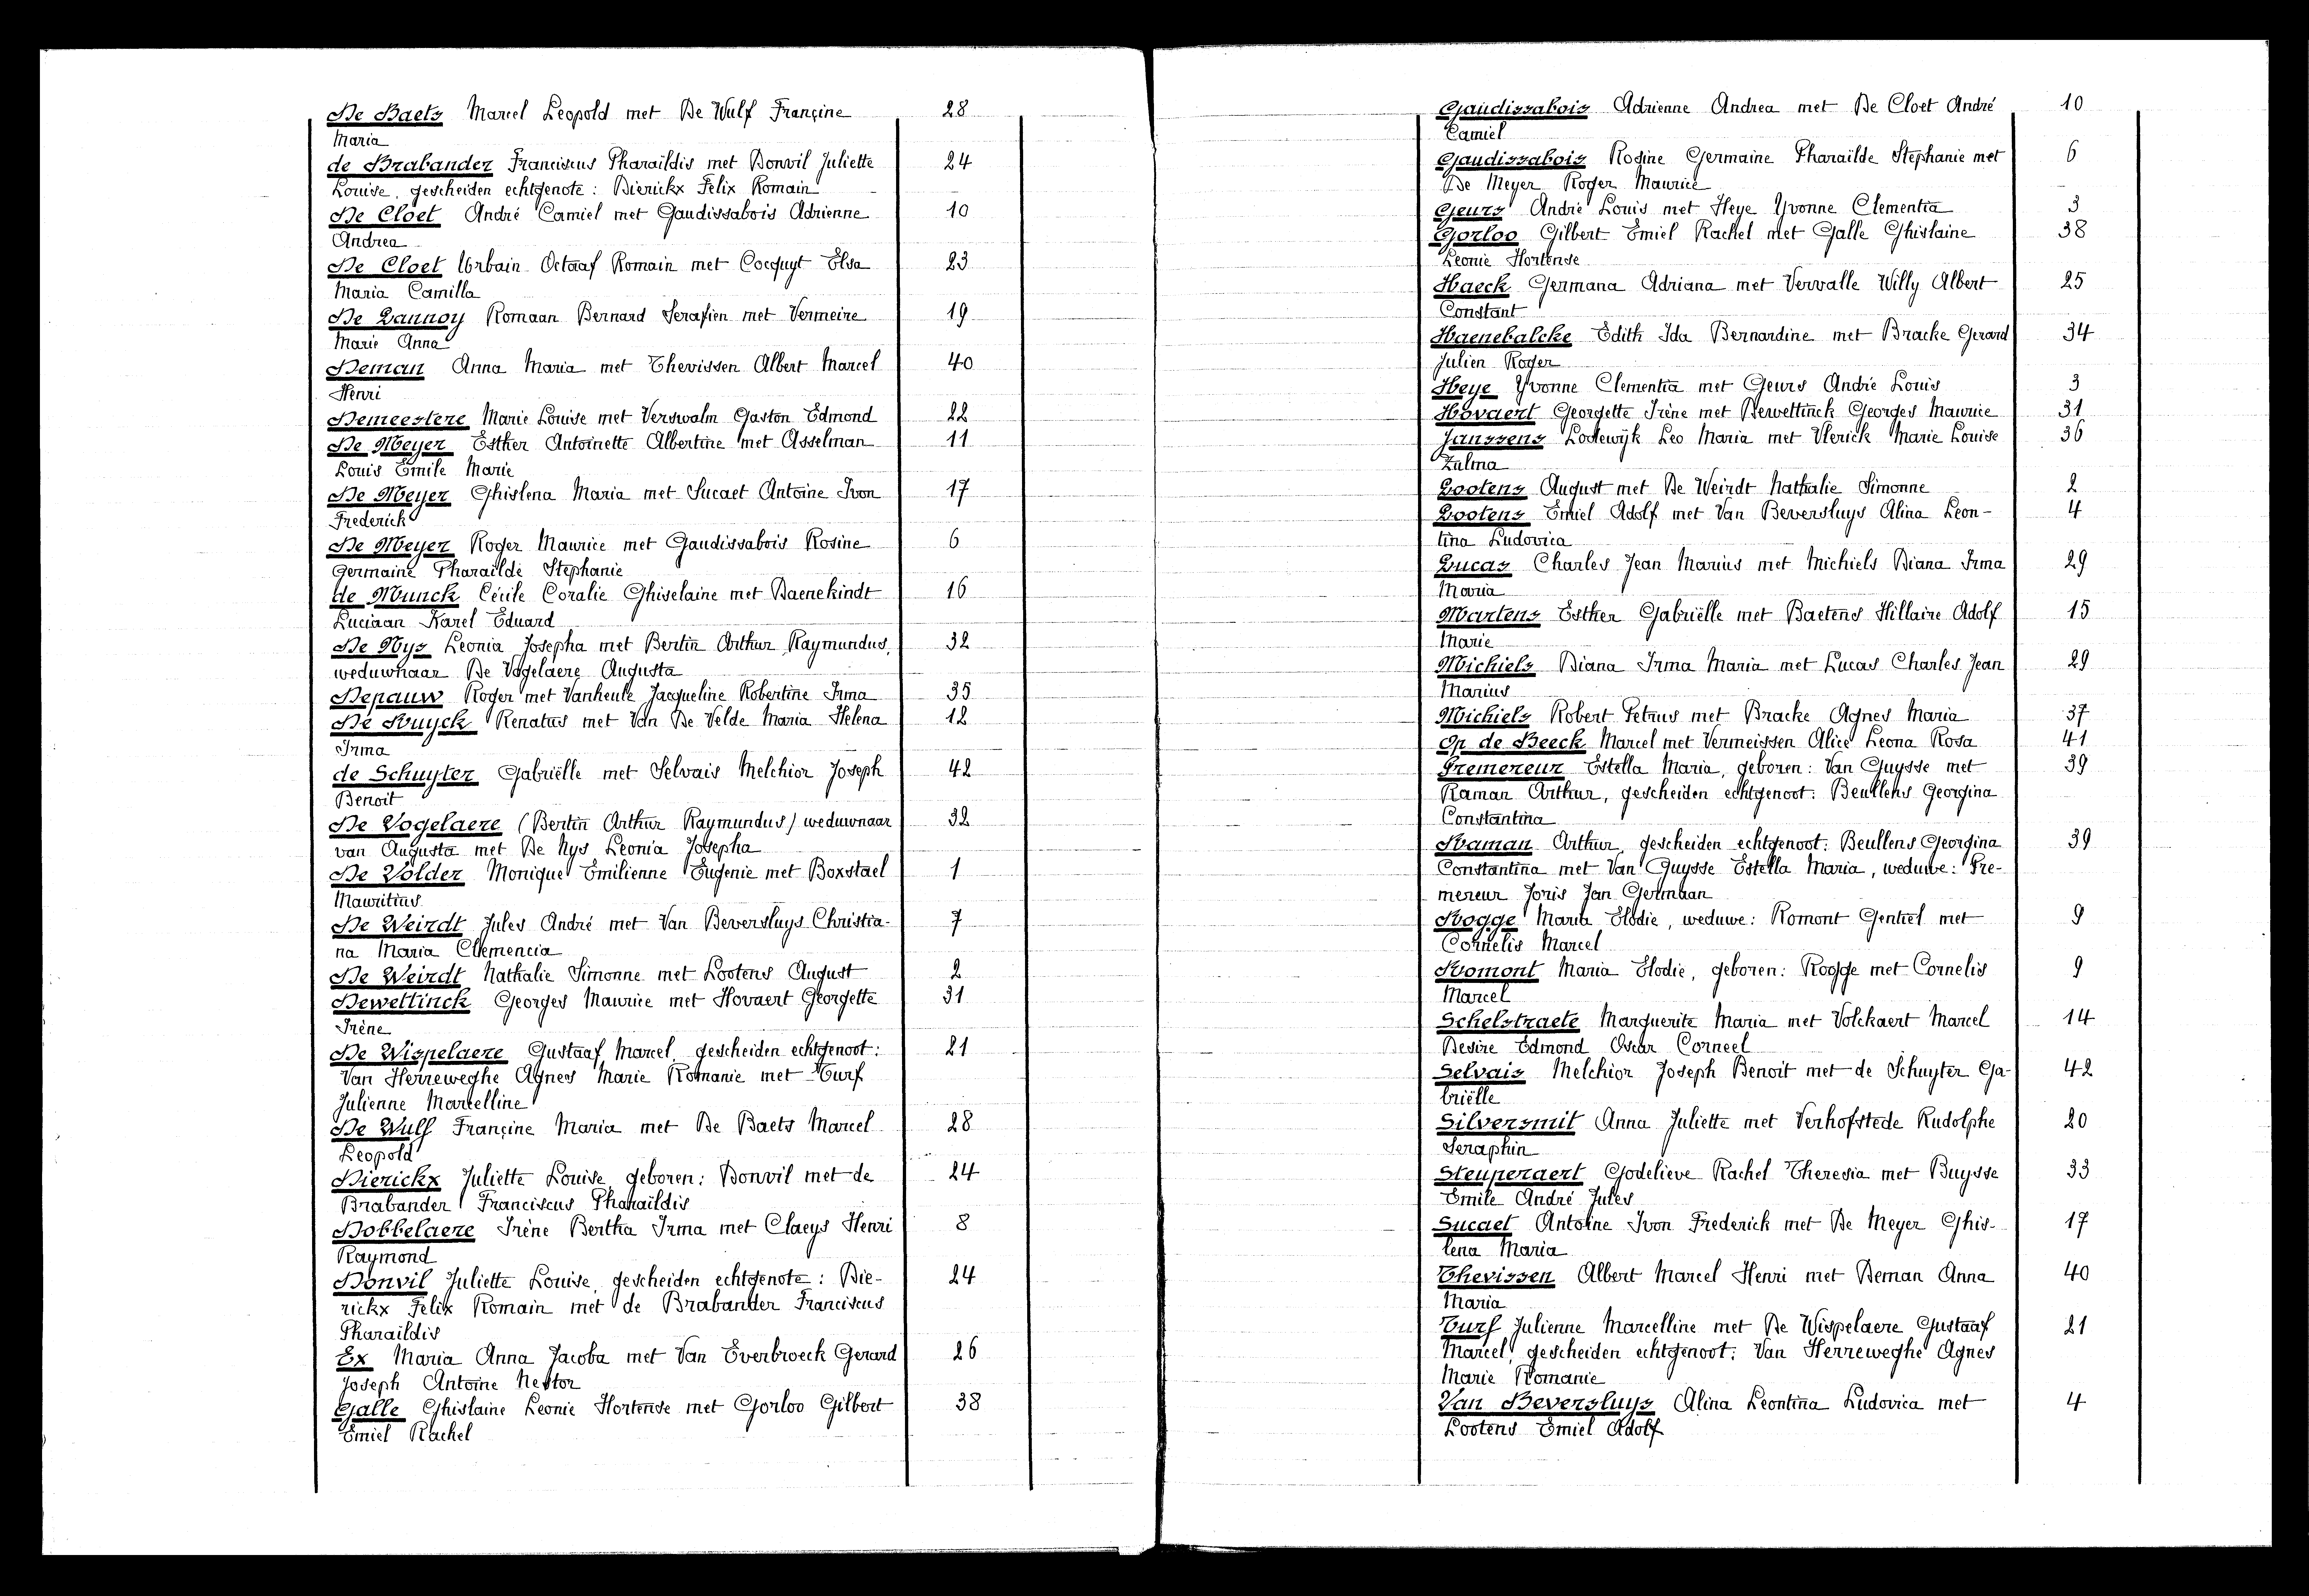 De Baets Marcel Leopold met De Wulf Françine 28
Maria
de Brabander Franciscus Pharaïldis met Donvil Juliette 24
Louise, gescheiden echtgenote: Dierickx Felix Romain
De Cloet André Camiel met Gaudissabois Adrienne 10
Andrea
De Cloet Urbain Octaaf Romain met Cocquyt Elsa 23
Maria Camilla
De Lannoy Romaan Bernard Serafien met Vermeire 19
Marie Anna
Deman Anna Maria met Thevissen Albert Marcel 40
Henri
Demeestere Marie Louise met Verswalm Gaston Edmond 22
De Meyer Esther Antoinette Albertine met Asselman 11
Louis Emile Marie
De Meyer Ghislena Maria met Sucaet Antoine Ivon 17
Frederick
De Meyer Roger Maurice met Gaudissabois Rosine 6
Germaine Pharaïlde Stephanie
de Munck Cécile Coralie Ghiselaine met Baenekindt 16
Luciaan Karel Eduard
De Nys Leonia Josepha met Bertin Arthur Raymundus, 32
weduwnaar De Vogelaere Augusta
Depauw Roger met Vanheule Jacqueline Robertine Irma 35
De Ruyck Renatus met Van De Velde Maria Helena 12
Irma
de Schuyter Gabriëlle met Selvais Melchior Joseph 42
Benoit
De Vogelaere (Bertin Arthur Raymundus) weduwnaar 32
van Augusta met De Nys Leonia Josepha
De Volder Monique Emilienne Eugenie met Boxstael 1
Mauritius
De Weirdt Jules André met Van Beversluys Christia- 7
na Maria Clemencia
De Weirdt Nathalie Simonne met Lootens August 2
Dewettinck Georges Maurice met Hovaert Georgette 31
Irène
De Wispelaere Gustaaf Marcel, gescheiden echtgenoot: 21
Van Herreweghe Agnes Marie Romanie met Turf
Julienne Marcelline
De Wulf Françine Maria met De Baets Marcel 28
Leopold
Dierickx Juliette Louise, geboren: Donvil met de 24
Brabander Franciscus Pharaïldis
Dobbelaere Irène Bertha Irma met Claeys Henri 8
Raymond
Donvil Juliette Louise, gescheiden echtgenote: Die- 24
rickx Felix Romain met de Brabander Franciscus
Pharaïldis
Ex Maria Anna Jacoba met Van Everbroeck Gerard 26
Joseph Antoine Nestor
Galle Ghislaine Leonie Hortense met Gorloo Gilbert 38
Emiel Rachel
Gaudissabois Adrienne Andrea met De Cloet André 10
Camiel
Gaudissabois Rosine Germaine Pharaïlde Stephanie met 6
De Meyer Roger Maurice
Geurs André Louis met Heye Yvonne Clementia 3
Gorloo Gilbert Emiel Rachel met Galle Ghislaine 38
Leonie Hortense
Haeck Germana Adriana met Vervalle Willy Albert 25
Constant
Haenebalcke Edith Ida Bernardine met Bracke Gerard 34
Julien Roger
Heye Yvonne Clementia met Geurs André Louis 3
Hovaert Georgette Irène met Dewettinck Georges Maurice 31
Janssens Lodewijk Leo Maria met Vlerick Marie Louise 36
Zulma
Lootens August met De Weirdt Nathalie Simonne 2
Lootens Emiel Adolf met Van Beversluys Alina Leon- 4
tina Ludovica
Lucas Charles Jean Marius met Michiels Diana Irma 29
Maria
Martens Esther Gabriëlle met Baetens Hillaire Adolf 15
Marie
Michiels Diana Irma Maria met Lucas Charles Jean 29
Marius
Michiels Robert Petrus met Bracke Agnes Maria 37
Op de Beeck Marcel met Vermeissen Alice Leona Rosa 41
Premereur Estella Maria, geboren: Van Guysse met 39
Raman Arthur, gescheiden echtgenoot: Beullens Georgina
Constantina
Raman Arthur, gescheiden echtgenoot: Beullens Georgina 39
Constantina met Van Guysse Estella Maria, weduwe: Pre-
mereur Joris Jan Germaan
Rogge Maria Elodie, weduwe: Romont Gentiel met 9
Cornelis Marcel
Romont Maria Elodie, geboren: Rogge met Cornelis 9
Marcel
Schelstraete Marguerite Maria met Volckaert Marcel 14
Desire Edmond Oscar Corneel
Selvais Melchior Joseph Benoit met de Schuyter Ga- 42
briëlle
Silversmit Anna Juliette met Verhofstede Rudolphe 20
Seraphin
Steuperaert Godelieve Rachel Theresia met Buysse 33
Emile André Jules
Sucaet Antoine Ivon Frederick met De Meyer Ghis- 17
lena Maria
Thevissen Albert Marcel Henri met Deman Anna 40
Maria
Turf Julienne Marcelline met De Wispelaere Gustaaf 21
Marcel, gescheiden echtgenoot: Van Herreweghe Agnes
Marie Romanie
Van Beversluys Alina Leontina Ludovica met 4
Lootens Emiel Adolf